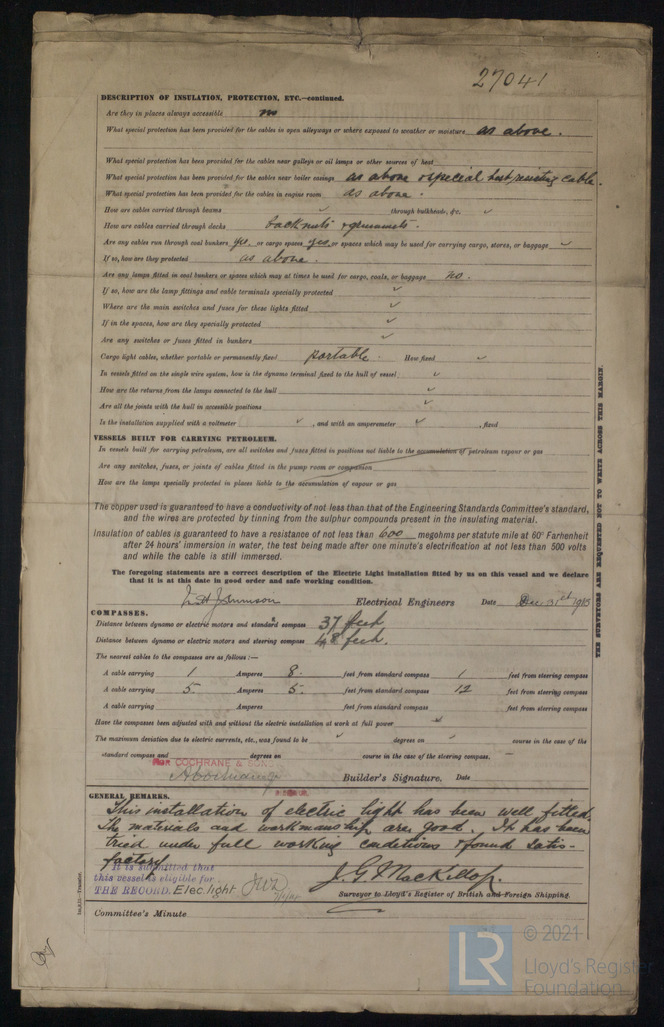 27041
DESCRIPTION OF INSULATION, PROTECTION, ETC.—continued.
Are they in places always accessible no
What special protection has been provided for the cables in open alleyways or where exposed to weather or moisture as above.
What special protection has been provided for the cables near galleys or oil lamps or other sources of heat
What special protection has been provided for the cables near boiler casings as above & special heat resisting cable.
What special protection has been provided for the cables in engine room as above.
How are cables carried through beams ✓ through bulkheads, &c. ✓
How are cables carried through decks backnuts & grummets.
Are any cables run through coal bunkers yes or cargo spaces yes or spaces which may be used for carrying cargo, stores, or baggage ✓
If so, how are they protected as above.
Are any lamps fitted in coal bunkers or spaces which may at times be used for cargo, coals, or baggage no.
If so, how are the lamp fittings and cable terminals specially protected ✓
Where are the main switches and fuses for these lights fitted ✓
If in the spaces, how are they specially protected ✓
Are any switches or fuses fitted in bunkers ✓
Cargo light cables, whether portable or permanently fixed portable. How fixed ✓
In vessels fitted on the single wire system, how is the dynamo terminal fixed to the hull of vessel ✓
How are the returns from the lamps connected to the hull ✓
Are all the joints with the hull in accessible positions ✓
Is the installation supplied with a voltmeter ✓, and with an amperemeter ✓, fixed
VESSELS BUILT FOR CARRYING PETROLEUM.
In vessels built for carrying petroleum, are all switches and fuses fitted in positions not liable to the accumulation of petroleum vapour or gas
Are any switches, fuses, or joints of cables fitted in the pump room or companion
How are the lamps specially protected in places liable to the accumulation of vapour or gas
The copper used is guaranteed to have a conductivity of not less than that of the Engineering Standards Committee's standard,
and the wires are protected by tinning from the sulphur compounds present in the insulating material.
Insulation of cables is guaranteed to have a resistance of not less than 600 megohms per statute mile at 60° Farhenheit
after 24 hours' immersion in water, the test being made after one minute's electrification at not less than 500 volts
and while the cable is still immersed.
The foregoing statements are a correct description of the Electric Light installation fitted by us on this vessel and we declare
that it is at this date in good order and safe working condition.
Electrical Engineers Date Dec. 31st 1915
COMPASSES.
Distance between dynamo or electric motors and standard compass 37 feet
Distance between dynamo or electric motors and steering compass 48 feet.
The nearest cables to the compasses are as follows:—
A cable carrying 1 Amperes 8. feet from standard compass 1 feet from steering compass
A cable carrying 5 Amperes 5. feet from standard compass 12 feet from steering compass
A cable carrying Amperes feet from standard compass feet from steering compass
Have the compasses been adjusted with and without the electric installation at work at full power
The maximum deviation due to electric currents, etc., was found to be ✓ degrees on ✓ course in the case of the
standard compass and degrees on course in the case of the steering compass.
FOR COCHRANE & SONS
Builder's Signature. Date
GENERAL REMARKS.
This installation of electric light has been well fitted.
The materials and workmanship are good. It has been
tried under full working conditions & found satis-
factory.
It is submitted that
this vessel is eligible for
THE RECORD. Elec. light
J. G. Mackillop.
Surveyor to Lloyd's Register of British and Foreign Shipping.
Committee's Minute
THE SURVEYORS ARE REQUESTED NOT TO WRITE ACROSS THIS MARGIN.
LR
© 2021
Lloyd's Register
Foundation